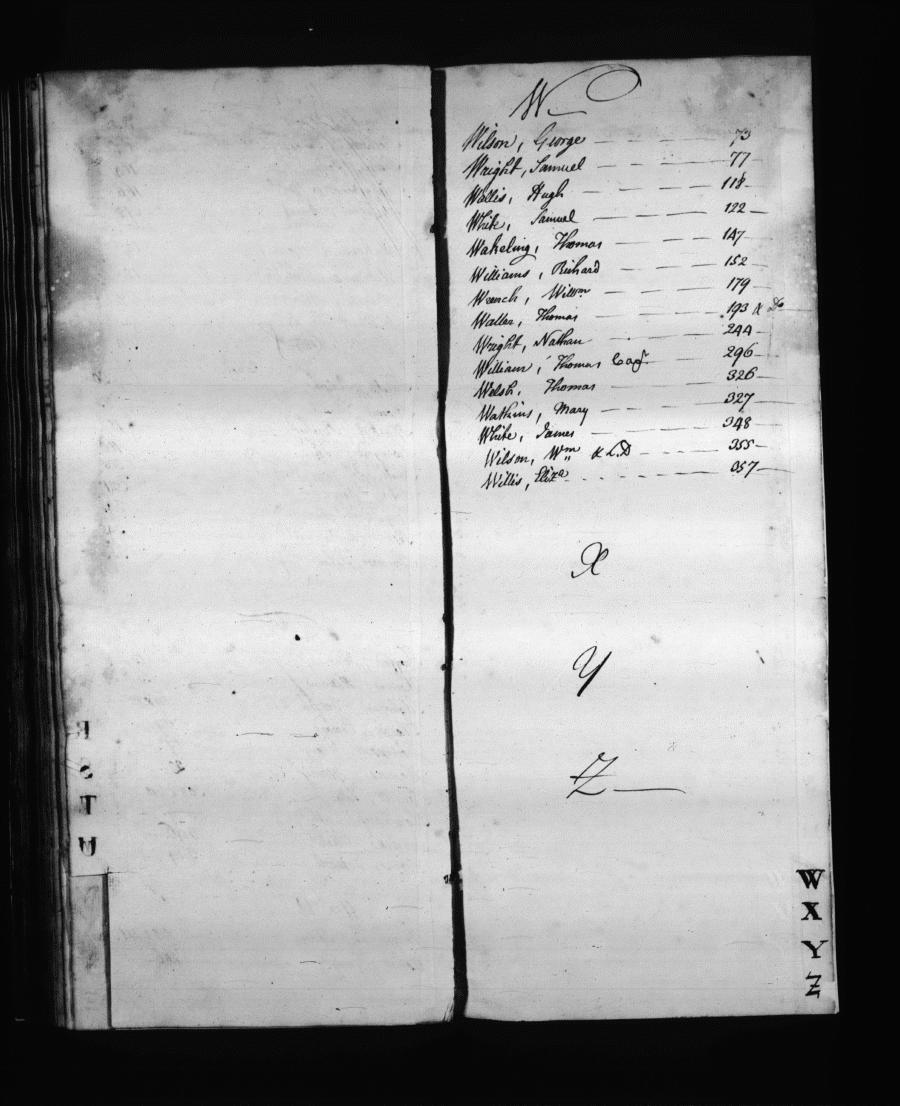 W
Wilson, George — — — — 73
Wright, Samuel — — — — 77
Wallis, Hugh — — — — 118
White, Samuel — — — — 122
Wakeling, Thomas — — — — 147
Williams, Richard — — — — 152
Wench, Willm — — — — 179
Waller, Thomas — — — — 193 & Do
Wright, Nathan — — — — 244
William, Thomas Capt — — 296
Welsh, Thomas — — — — 326
Watkins, Mary — — — — 327
White, James — — — — 348
Wilson, Wm & L.D — — — — 355
Willis, Eliza — — — — 357
X
Y
Z
S
T
U
W
X
Y
Z